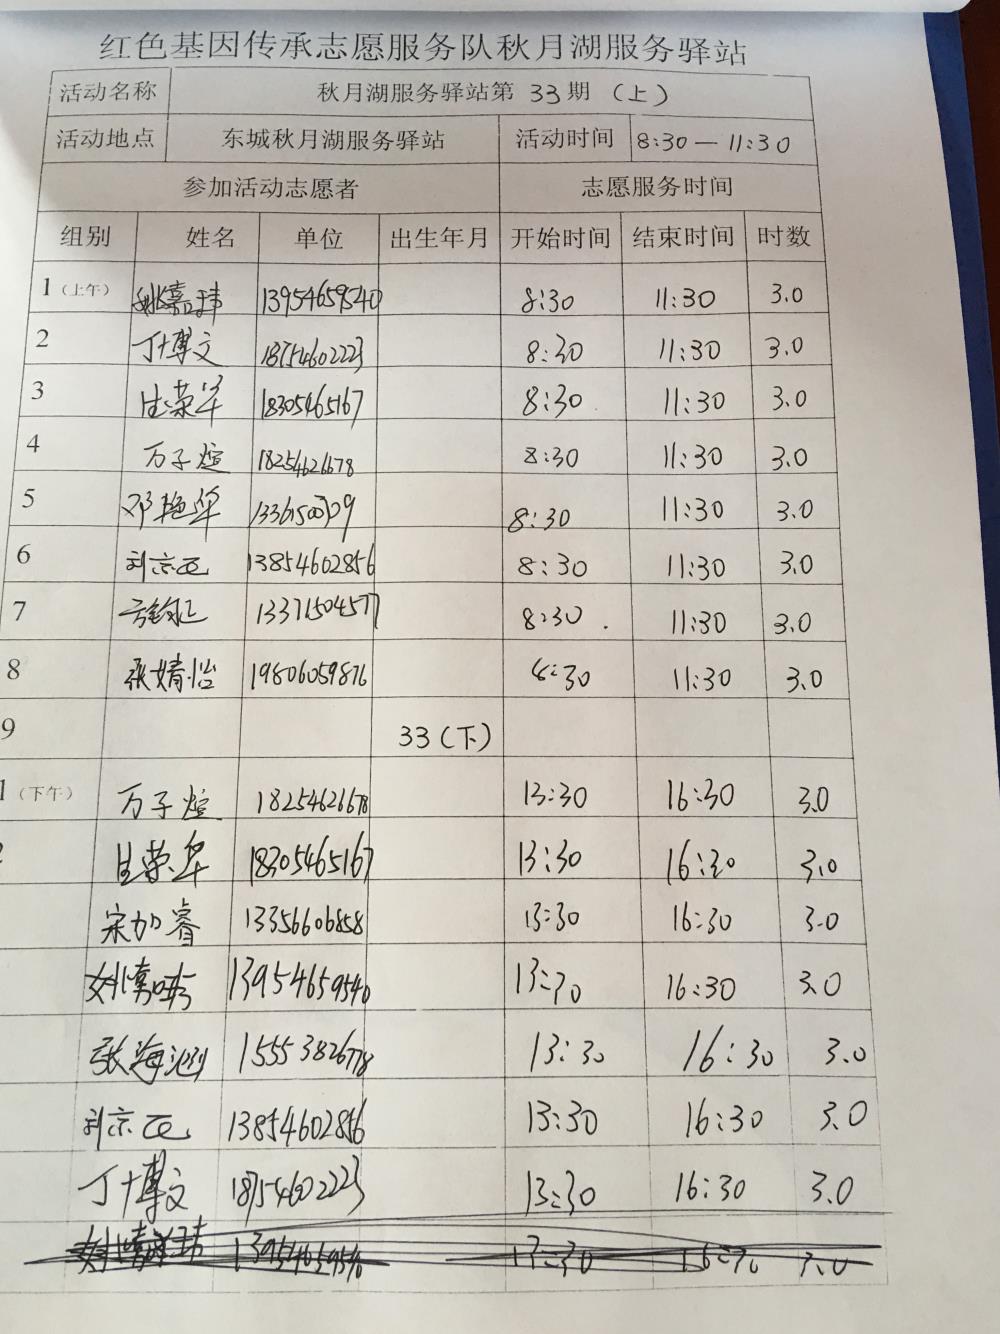 红色基因传承志愿服务队秋月湖服务驿站
活动名称 秋月湖服务驿站第 33 期 (上)
活动地点 东城秋月湖服务驿站 活动时间 8:30 — 11:30
参加活动志愿者 志愿服务时间
组别 姓名 单位 出生年月 开始时间 结束时间 时数
1 (上午) 姚嘉玮 13954659540 8:30 11:30 3.0
2 丁博文 18754602223 8:30 11:30 3.0
3 生荣华 18305465167 8:30 11:30 3.0
4 万子煊 18254626678 8:30 11:30 3.0
5 邓艳华 8:30 11:30 3.0
6 刘京 13854602856 8:30 11:30 3.0
7 13371504577 8:30 11:30 3.0
8 张婧怡 19806059876 8:30 11:30 3.0
9 33 (下)
1 (下午) 万子煊 18254626678 13:30 16:30 3.0
生荣华 18305465167 13:30 16:30 3.0
宋加睿 13356606858 13:30 16:30 3.0
姚嘉玮 13954659540 13:30 16:30 3.0
张海 15553826778 13:30 16:30 3.0
刘京 13854602856 13:30 16:30 3.0
丁博文 18754602223 13:30 16:30 3.0